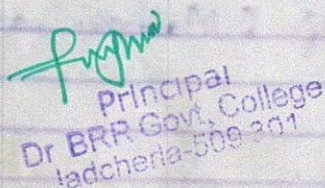 Principal
Dr BRR Govt. College
Jadcherla-509 301